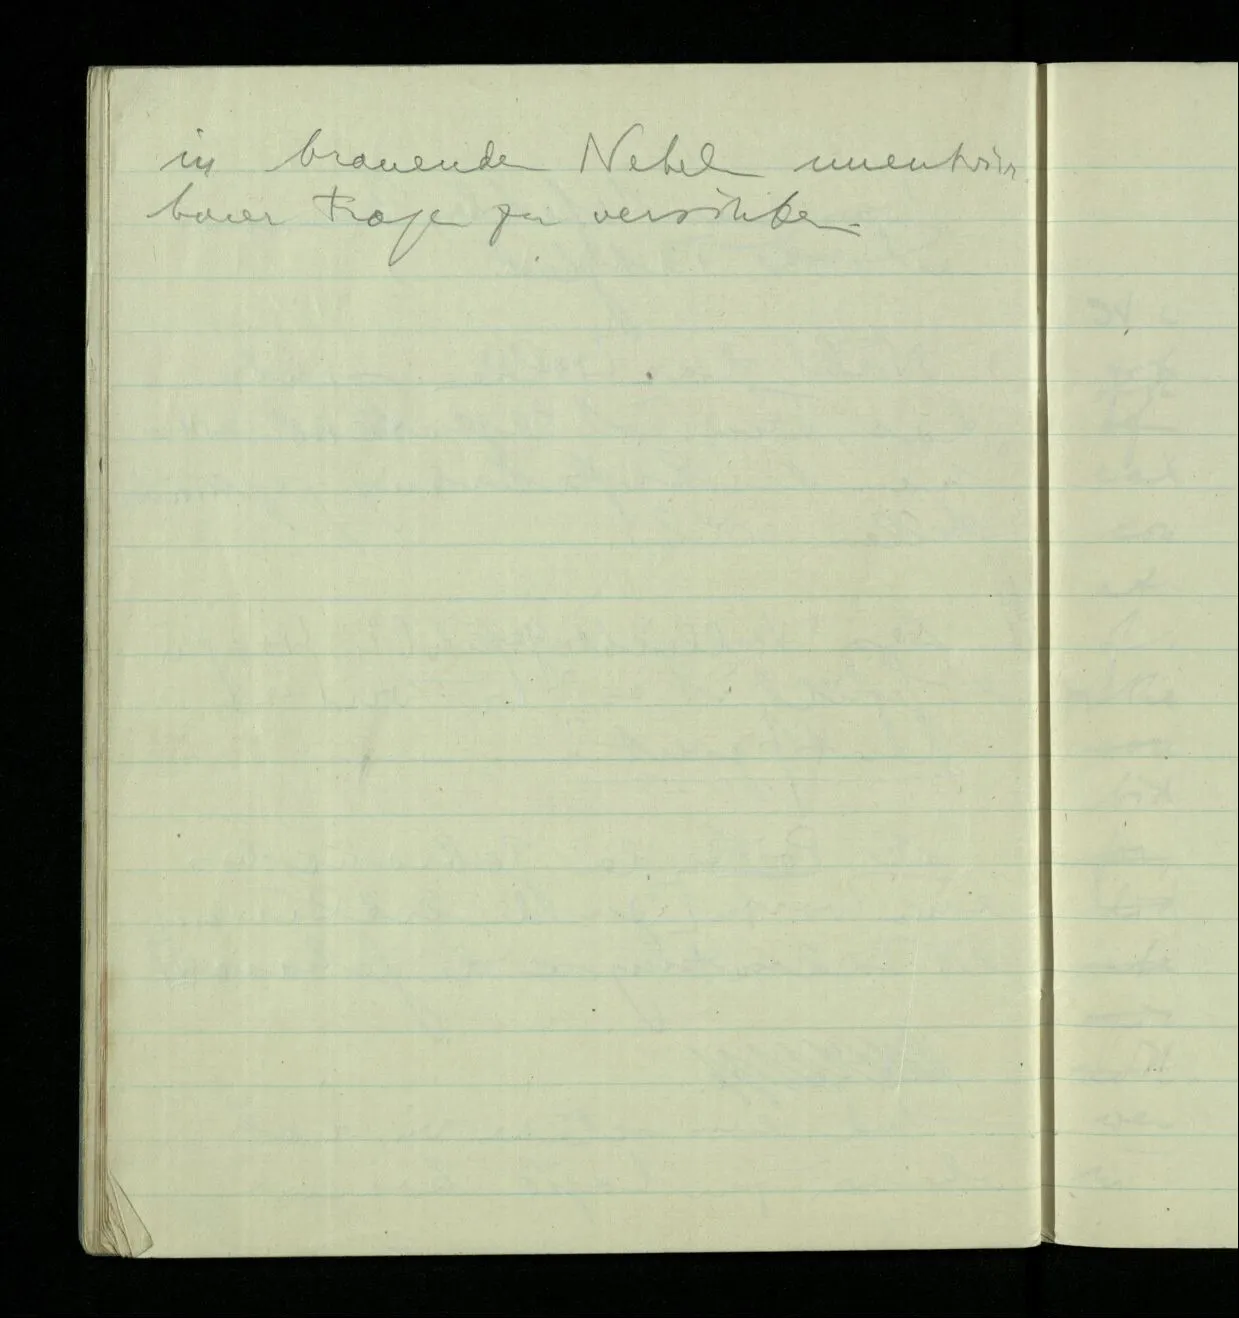 in brauende Nebel unentwirr
barer Frage zu versinken.